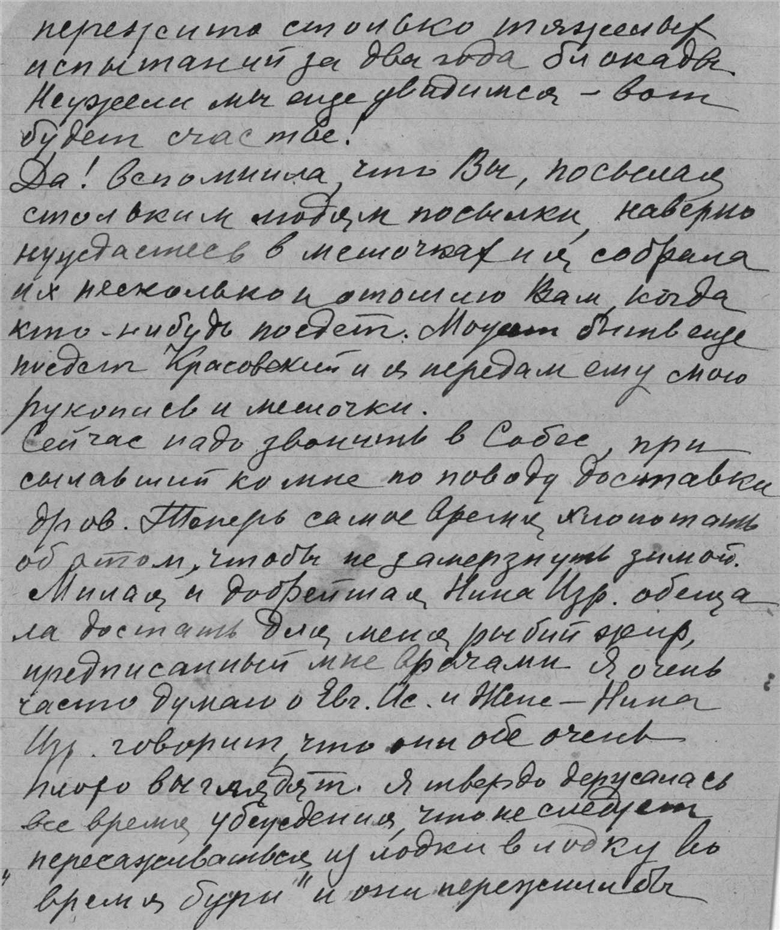 пережито столько тяжелых
испытаний за два года блокады
Неужели мы еще увидимся – вот
будет счастье!
Да! вспомнила, что Вы, посылая
стольким людям посылки, наверно
нуждаетесь в мешочках и я, собрала
их несколько и отошлю Вам, когда
кто-нибудь поедет. Может быть еще
поедет Красовский и я передам ему свою
рукопись и мешочки.
Сейчас надо звонить в Собес, при
сылавший ко мне по поводу доставки
дров. Теперь самое время хлопотать
об этом, чтобы не замерзнуть зимой.
Милая и добрейшая Нина Изр. обеща
ла достать для меня рыбий жир,
предписанный мне врачами. Я очень
часто думаю о Евг. Ис. и Жене – Нина
Изр. говорит, что они обе очень
плохо выглядят. Я твердо держалась
все время убеждения, что не следует
пересаживаться из лодки в лодку во
"время бури" и они пережили бы